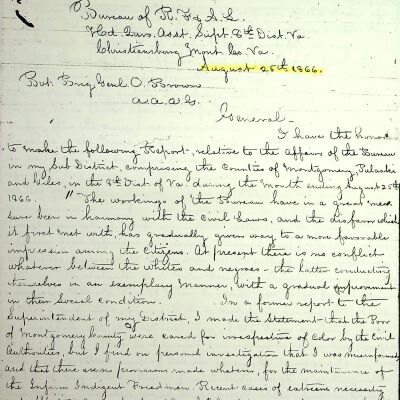 Bureau of R. F & A. L.
Hd. Qurs. Asst. Supt 8th Dist. Va.
Christiansburg Mont. Co. Va.
August 25th 1866.
Bvt. Brig. Genl O. Brown
A. A. A. G.
General—
I have the honor
to make the following Report, relative to the affairs of the Bureau
in my Sub District, comprising the Counties of Montgomery, Pulaski
and Giles, in the 8th Dist. of Va. during the Month ending August 25th
1866. "The workings of the Bureau have in a great mea
sure been in harmony with the Civil Laws, and the disfavor which
it first met with, has gradually given way to a more favorable
impression among the Citizens. At present there is no conflict
whatever between the whites and negroes - the latter conducting
themselves in an exemplary manner, with a gradual improvement
in their social condition. In a former report to the
Superintendent of my District, I made the Statement that the Poor
of Montgomery County were cared for irrespective of Color by the Civil
Authorities, but I find on personal investigation that I was misinformed
and that there are no provisions made whatever, for the maintenance of
the Infirm Indigent Freedmen. Recent cases of extreme necessity